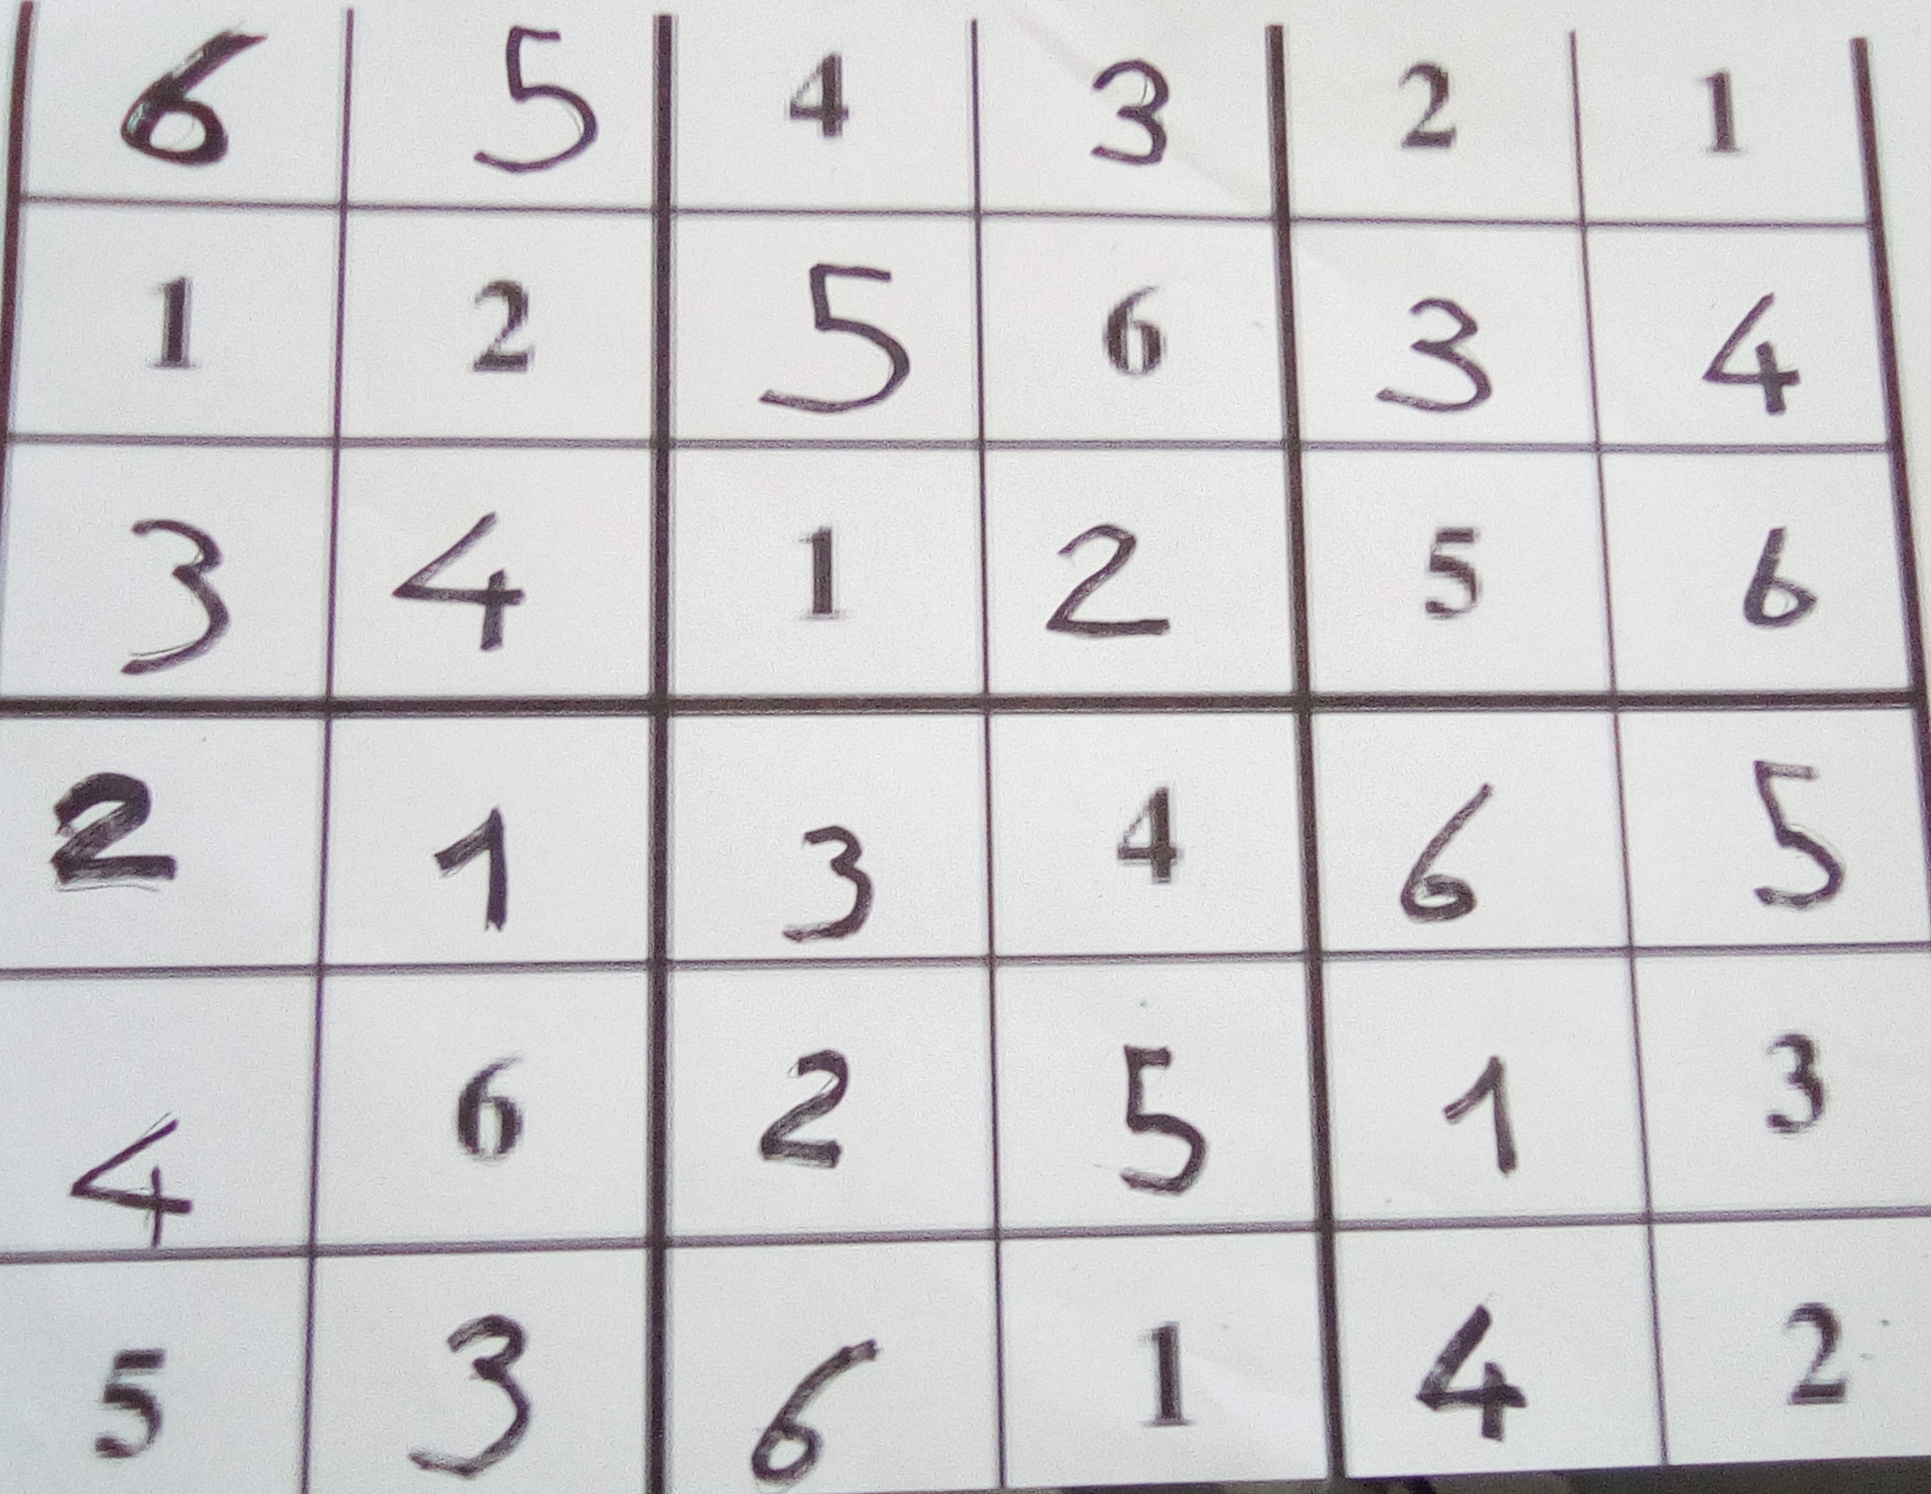 6 5 4 3 2 1
1 2 5 6 3 4
3 4 1 2 5 6
2 1 3 4 6 5
4 6 2 5 1 3
5 3 6 1 4 2